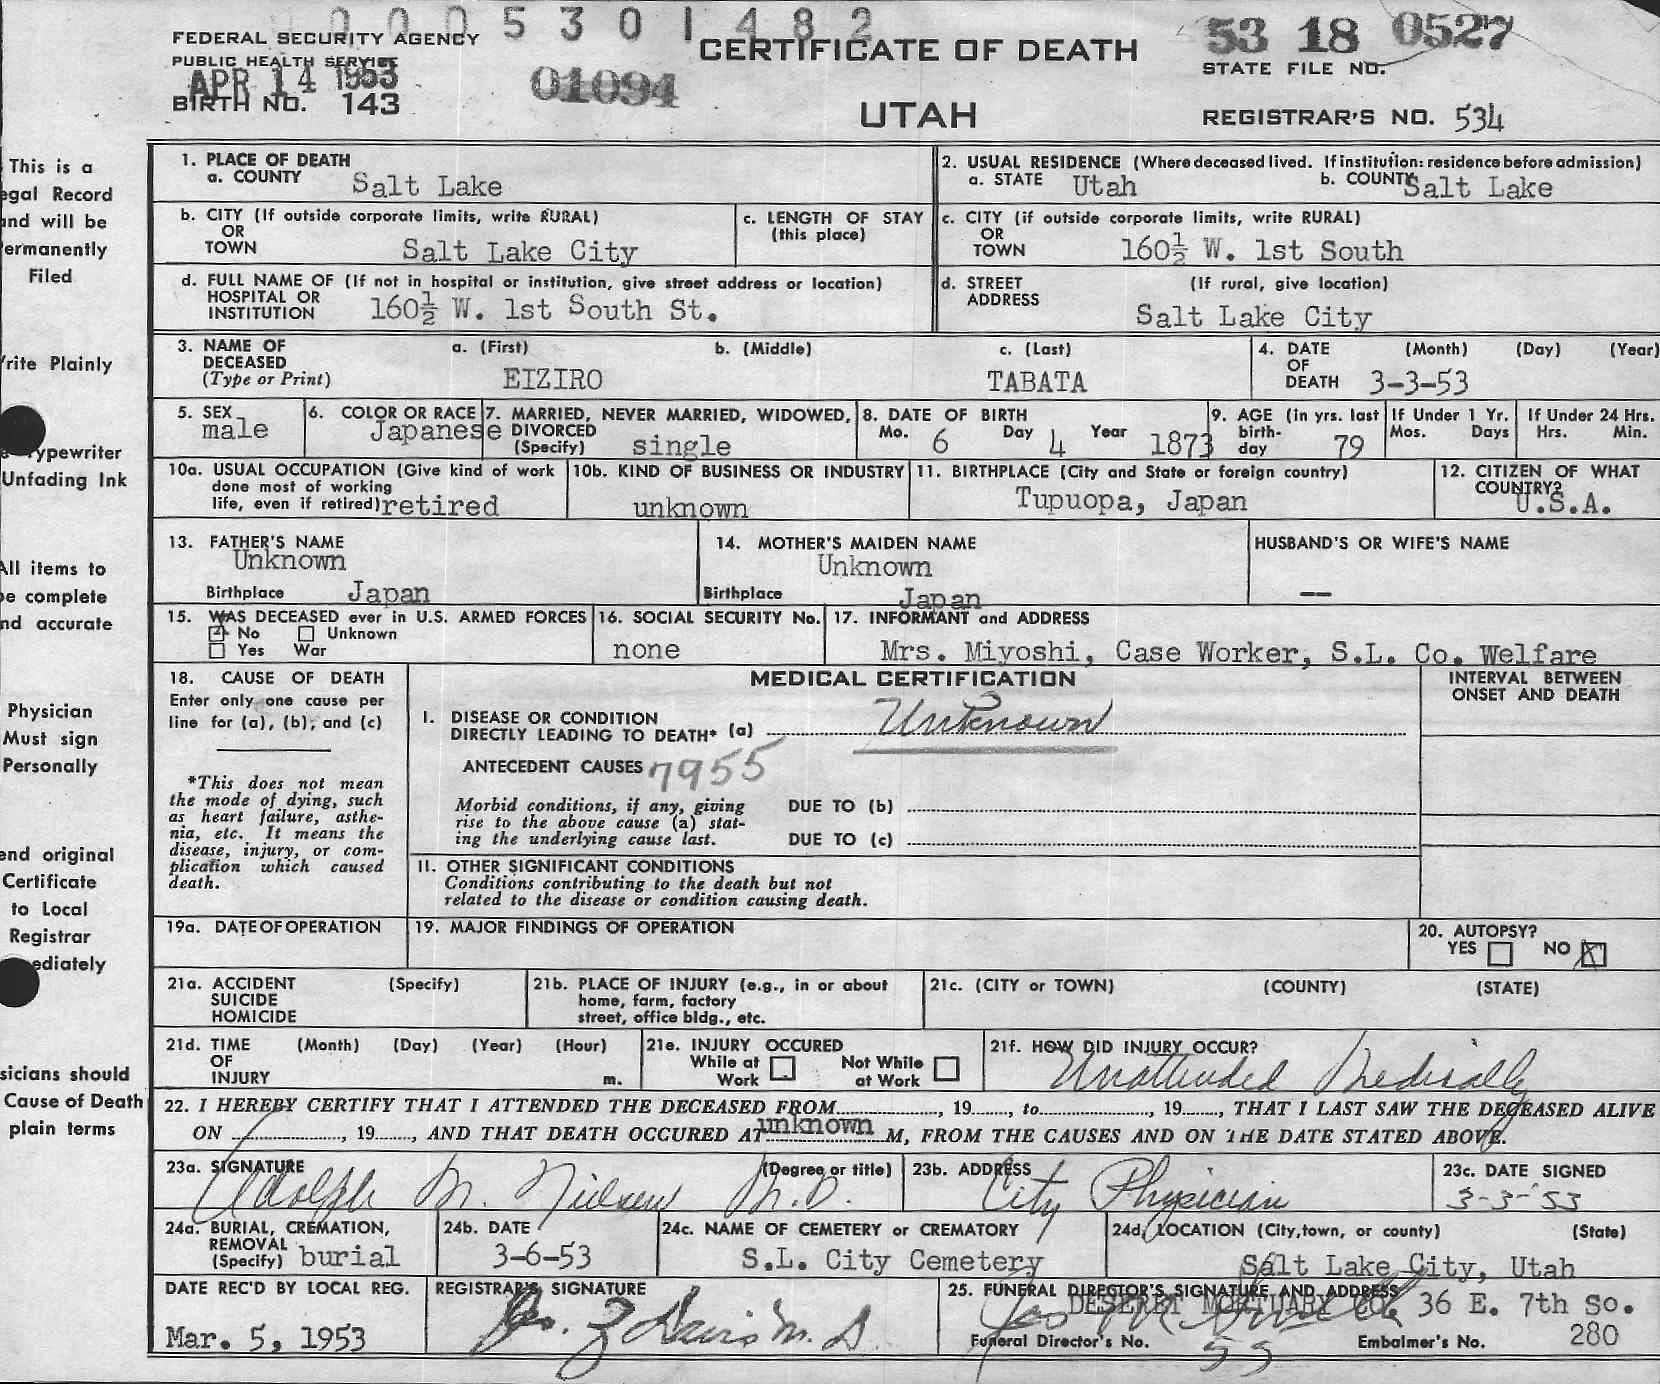 0005301482
FEDERAL SECURITY AGENCY
PUBLIC HEALTH SERVICE
APR 14 1953
BIRTH NO. 143
01094
CERTIFICATE OF DEATH
UTAH
53 18 0527
STATE FILE NO.
REGISTRAR'S NO. 534
This is a
egal Record
and will be
ermanently
Filed
rite Plainly
ypewriter
Unfading Ink
All items to
be complete
nd accurate
Physician
Must sign
Personally
end original
Certificate
to Local
Registrar
ediately
sicians should
Cause of Death
plain terms
1. PLACE OF DEATH
a. COUNTY Salt Lake
2. USUAL RESIDENCE (Where deceased lived. If institution: residence before admission)
a. STATE Utah b. COUNTY Salt Lake
b. CITY (If outside corporate limits, write RURAL)
OR
TOWN Salt Lake City
c. LENGTH OF STAY
(this place)
c. CITY (if outside corporate limits, write RURAL)
OR
TOWN 160½ W. 1st South
d. FULL NAME OF (If not in hospital or institution, give street address or location)
HOSPITAL OR
INSTITUTION 160½ W. 1st South St.
d. STREET (If rural, give location)
ADDRESS
Salt Lake City
3. NAME OF DECEASED
(Type or Print)
a. (First) b. (Middle) c. (Last)
EIZIRO TABATA
4. DATE (Month) (Day) (Year)
OF
DEATH 3-3-53
5. SEX
male
6. COLOR OR RACE
Japanese
7. MARRIED, NEVER MARRIED, WIDOWED,
DIVORCED
(Specify) single
8. DATE OF BIRTH
Mo. 6 Day 4 Year 1873
9. AGE (in yrs. last
birth-
day 79
If Under 1 Yr.
Mos. Days
If Under 24 Hrs.
Hrs. Min.
10a. USUAL OCCUPATION (Give kind of work
done most of working
life, even if retired) retired
10b. KIND OF BUSINESS OR INDUSTRY
unknown
11. BIRTHPLACE (City and State or foreign country)
Tupuopa, Japan
12. CITIZEN OF WHAT
COUNTRY?
U.S.A.
13. FATHER'S NAME
Unknown
Birthplace Japan
14. MOTHER'S MAIDEN NAME
Unknown
Birthplace Japan
HUSBAND'S OR WIFE'S NAME
--
15. WAS DECEASED ever in U.S. ARMED FORCES
No Unknown
Yes War
16. SOCIAL SECURITY No.
none
17. INFORMANT and ADDRESS
Mrs. Miyoshi, Case Worker, S.L. Co. Welfare
18. CAUSE OF DEATH
Enter only one cause per
line for (a), (b), and (c)
*This does not mean
the mode of dying, such
as heart failure, asthe-
nia, etc. It means the
disease, injury, or com-
plication which caused
death.
MEDICAL CERTIFICATION
INTERVAL BETWEEN
ONSET AND DEATH
I. DISEASE OR CONDITION
DIRECTLY LEADING TO DEATH* (a) Unknown
ANTECEDENT CAUSES 7955
Morbid conditions, if any, giving
rise to the above cause (a) stat-
ing the underlying cause last.
DUE TO (b)
DUE TO (c)
II. OTHER SIGNIFICANT CONDITIONS
Conditions contributing to the death but not
related to the disease or condition causing death.
19a. DATE OF OPERATION
19. MAJOR FINDINGS OF OPERATION
20. AUTOPSY?
YES NO X
21a. ACCIDENT (Specify)
SUICIDE
HOMICIDE
21b. PLACE OF INJURY (e.g., in or about
home, farm, factory
street, office bldg., etc.
21c. (CITY or TOWN) (COUNTY) (STATE)
21d. TIME (Month) (Day) (Year) (Hour)
OF
INJURY m.
21e. INJURY OCCURED
While at Work Not While at Work
21f. HOW DID INJURY OCCUR?
Unattended Medically
22. I HEREBY CERTIFY THAT I ATTENDED THE DECEASED FROM , 19 , to , 19 , THAT I LAST SAW THE DECEASED ALIVE
ON , 19 , AND THAT DEATH OCCURED AT unknown M, FROM THE CAUSES AND ON THE DATE STATED ABOVE.
23a. SIGNATURE (Degree or title)
Adolph M. Nielsen M.D.
23b. ADDRESS
City Physician
23c. DATE SIGNED
3-3-'53
24a. BURIAL, CREMATION,
REMOVAL
(Specify) burial
24b. DATE
3-6-53
24c. NAME OF CEMETERY or CREMATORY
S.L. City Cemetery
24d. LOCATION (City, town, or county) (State)
Salt Lake City, Utah
DATE REC'D BY LOCAL REG.
Mar. 5, 1953
REGISTRAR'S SIGNATURE
25. FUNERAL DIRECTOR'S SIGNATURE AND ADDRESS
DESERET MORTUARY CO. 36 E. 7th So.
Funeral Director's No. 55 Embalmer's No. 280